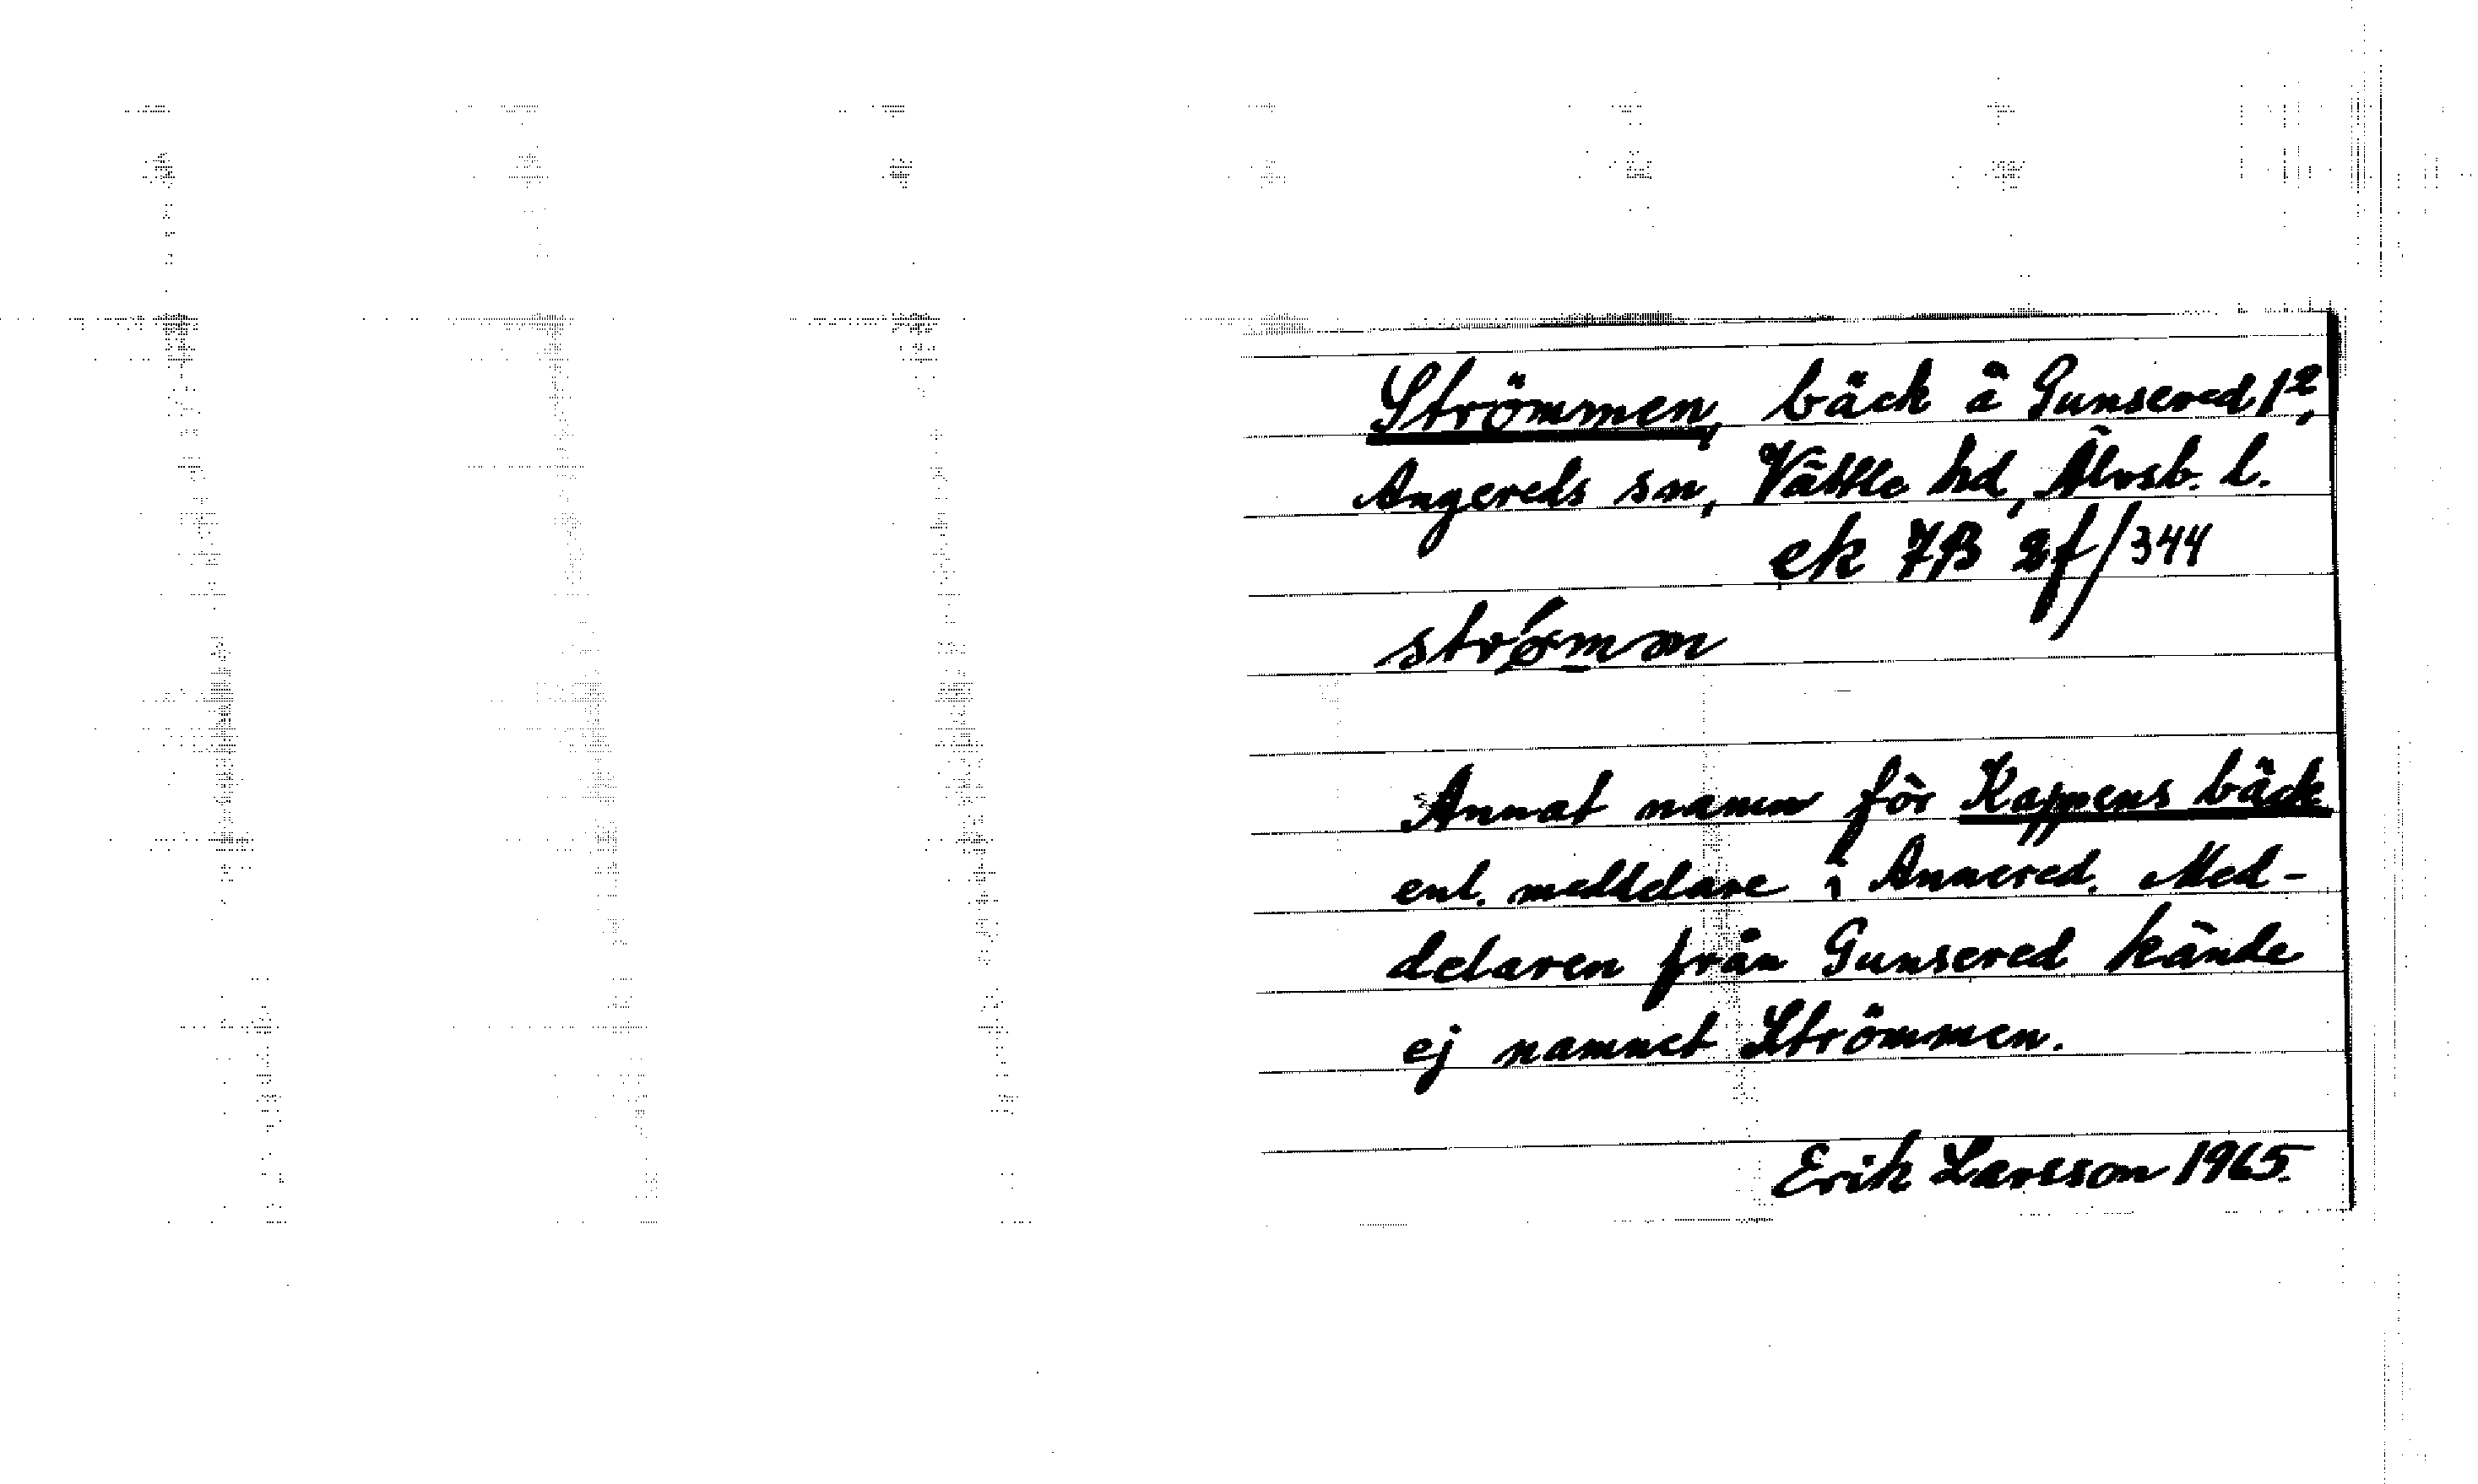 Strömmen, bäck å Gunsered 1²,
Angereds sn, Vättle hd, Älvsb. l.
ek 7B 2f/344
Annat namn för Kappens bäck
enl. meddelare i Annered. Med-
delaren från Gunsered kände
ej namnet Strömmen.
Erik Larsson 1965.